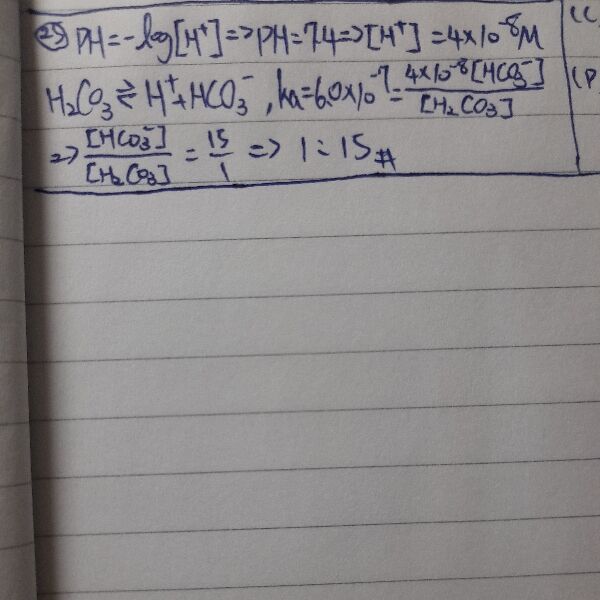 25 PH=-log[H⁺]=>PH=7.4=>[H⁺]=4×10⁻⁸M
H₂CO₃⇌H⁺+HCO₃⁻, ka=6.0×10⁻⁷=4×10⁻⁸[HCO₃⁻]/[H₂CO₃]
=>[HCO₃⁻]/[H₂CO₃]=15/1=>1:15#